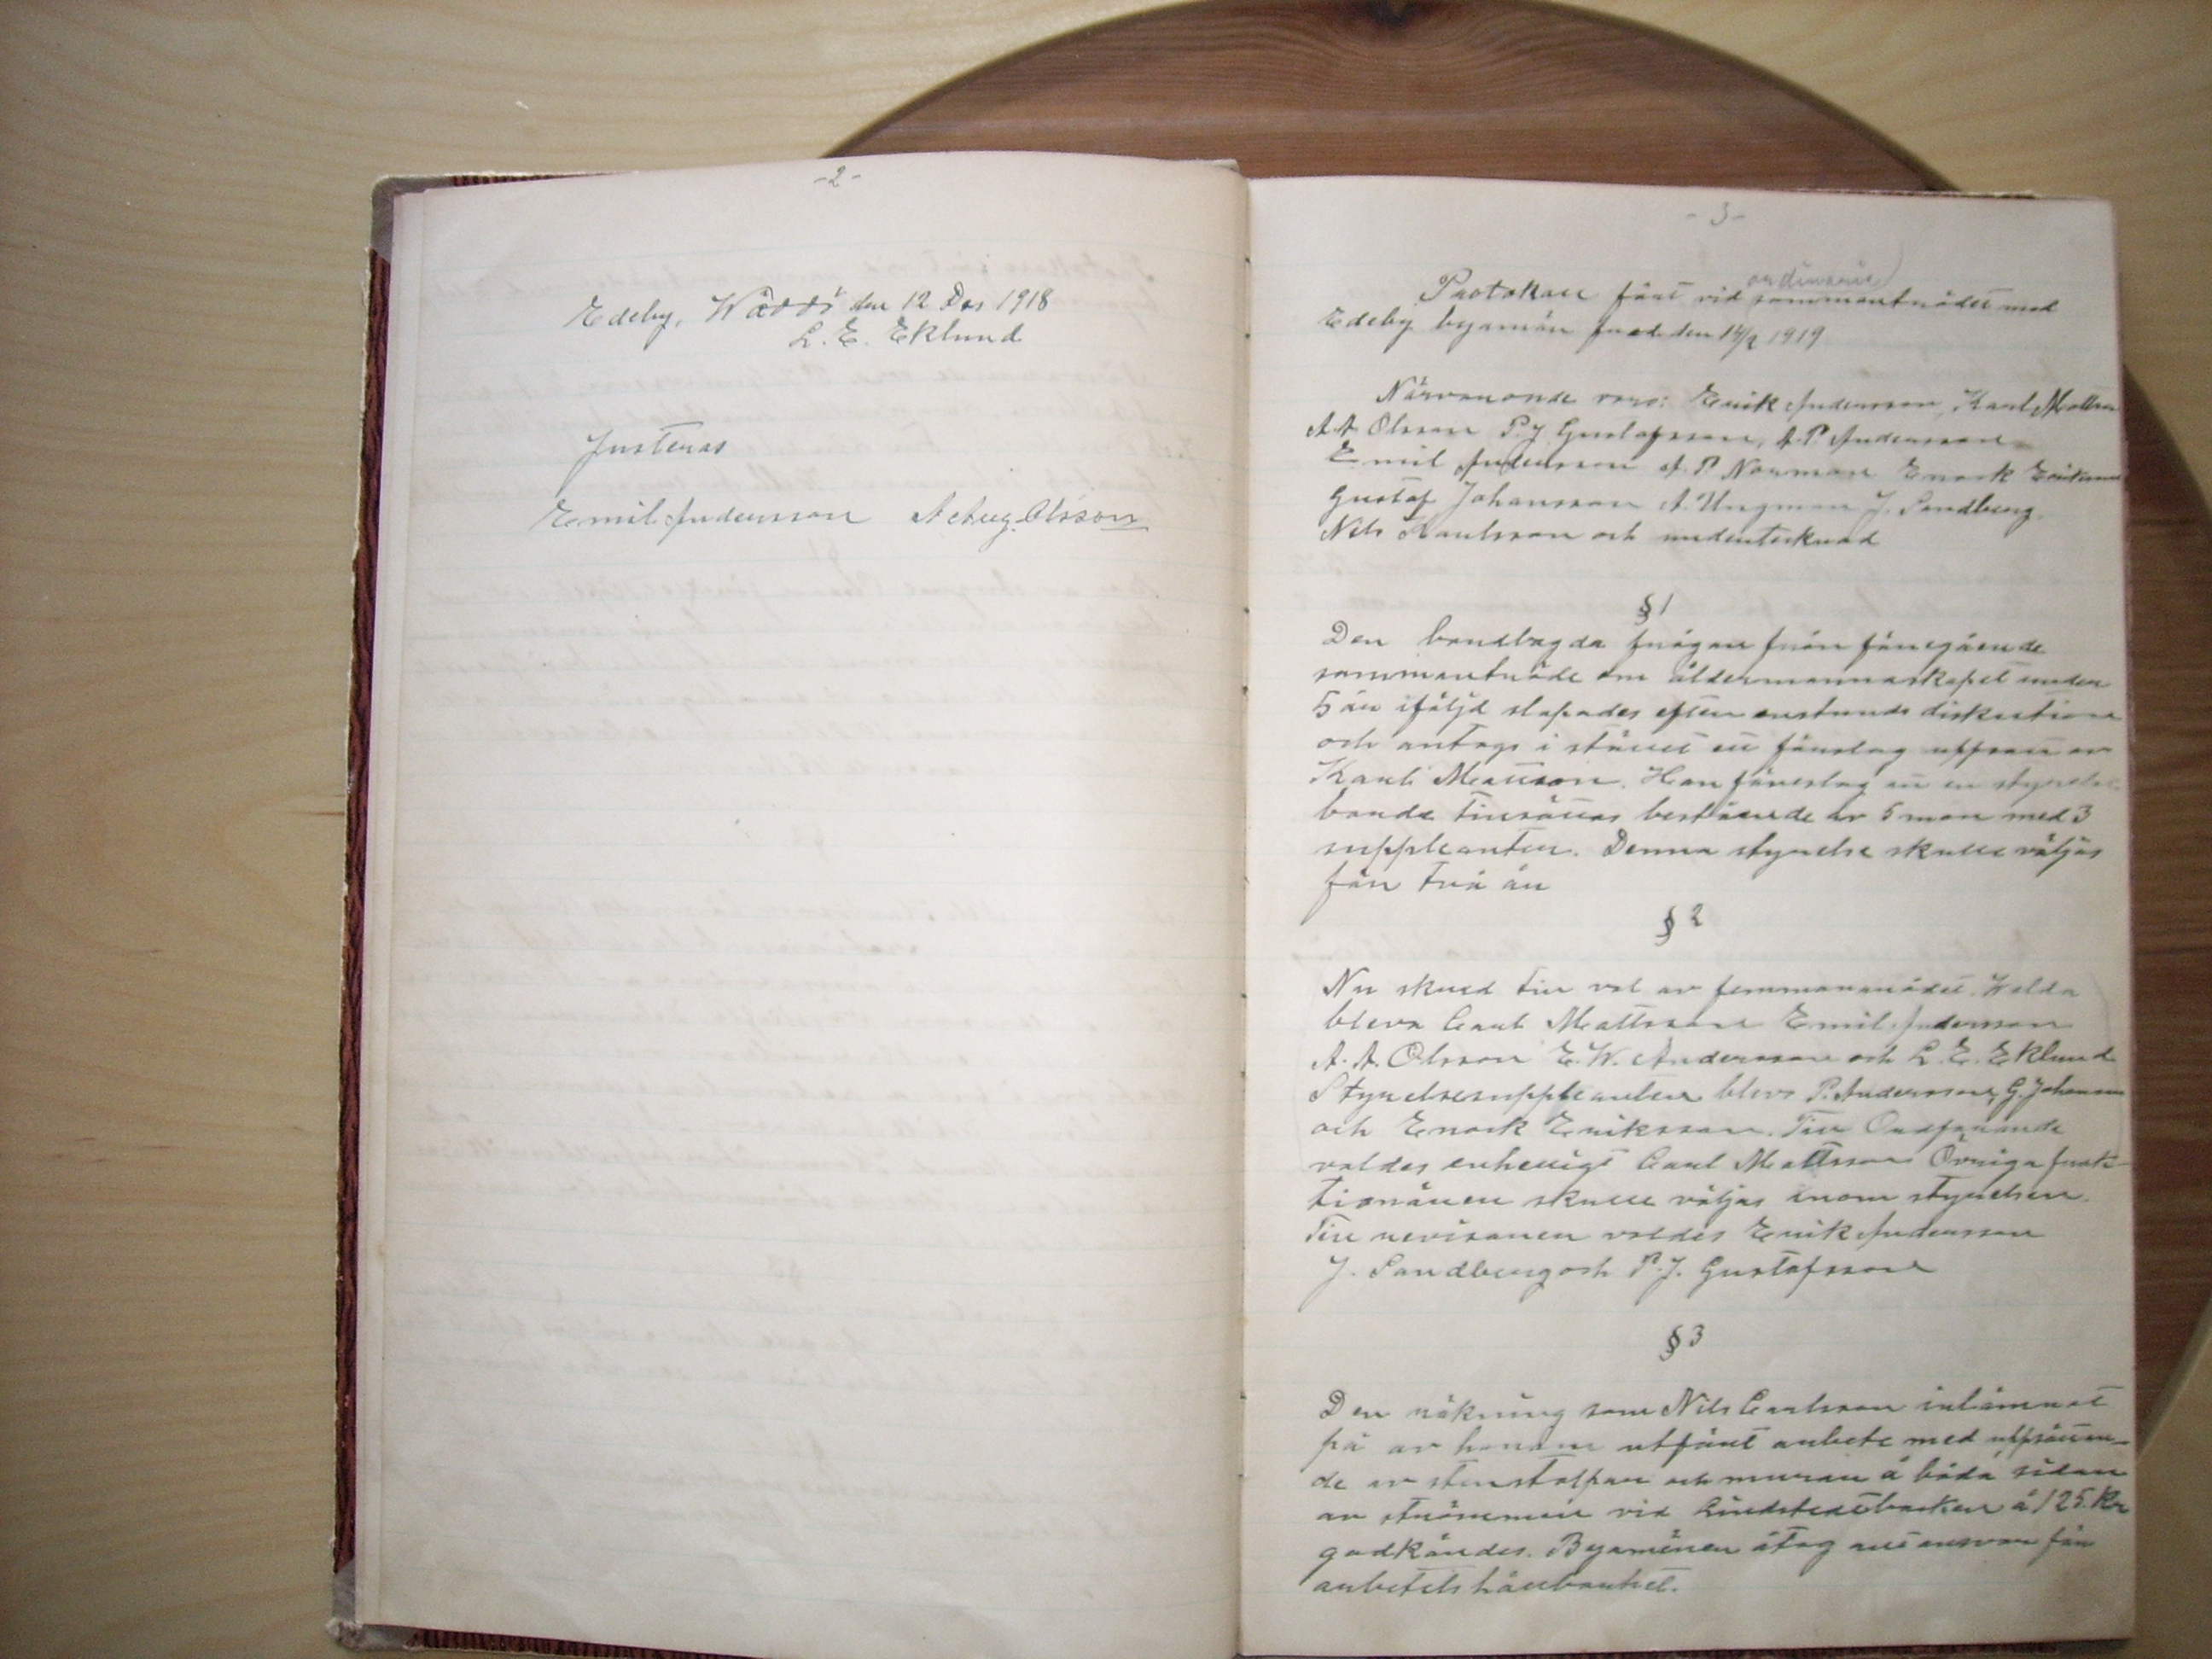 -2-
Edeby, Wäddö den 12 Des 1918
L. E. Eklund
Justeras
Emil Andersson A Aug. Olsson
-3-
ordinarie
Protokoll fört vid sammanträdet med
Edeby byamän fred den 14/2 1919
Närvarande voro: Erik Andersson, Karl Mattson
A. A. Olsson P. J. Gustafsson, A. P. Andersson
Emil Andersson A. P. Norman Enock Eriksson
Gustaf Johansson A. Ungman J. Sandberg
Nils Karlsson och undertecknad
§ 1
Den bordlagda frågan från föregående
sammanträde om åldermannaskapet under
5 år iföljd slopades efter enstunds diskution
och antogs i stället ett förslag uppsatt av
Karl Mattsson. Han föreslog att en styrelse
borde tillsättas bestående av 5 man med 3
suppleanter. Denna styrelse skulle väljas
för två år
§ 2
Nu skred till val av femmanarådet. Walda
blevo Carl Mattsson Emil Andersson
A. A. Olsson E. W. Andersson och L. E. Eklund
Styrelsesuppleanter blevo P. Andersson, G. Johansson
och Enock Eriksson. Till Ordförande
valdes enhelligt Carl Mattsson Övriga funk-
tionärer skulle väljas inom styrelsen.
Till revisorer valdes Erik Andersson
J. Sandberg och P. J. Gustafsson
§ 3
Den räkning som Nils Carlsson inlämnat
på av honom utfört arbete med uppsättan-
de av stenstolpar och murar å båda sidor
av strömmen vid Lindstedtbacken å 125. Kr
godkändes. Byamännen åtog sig ansvar för
arbetets hållbarhet.